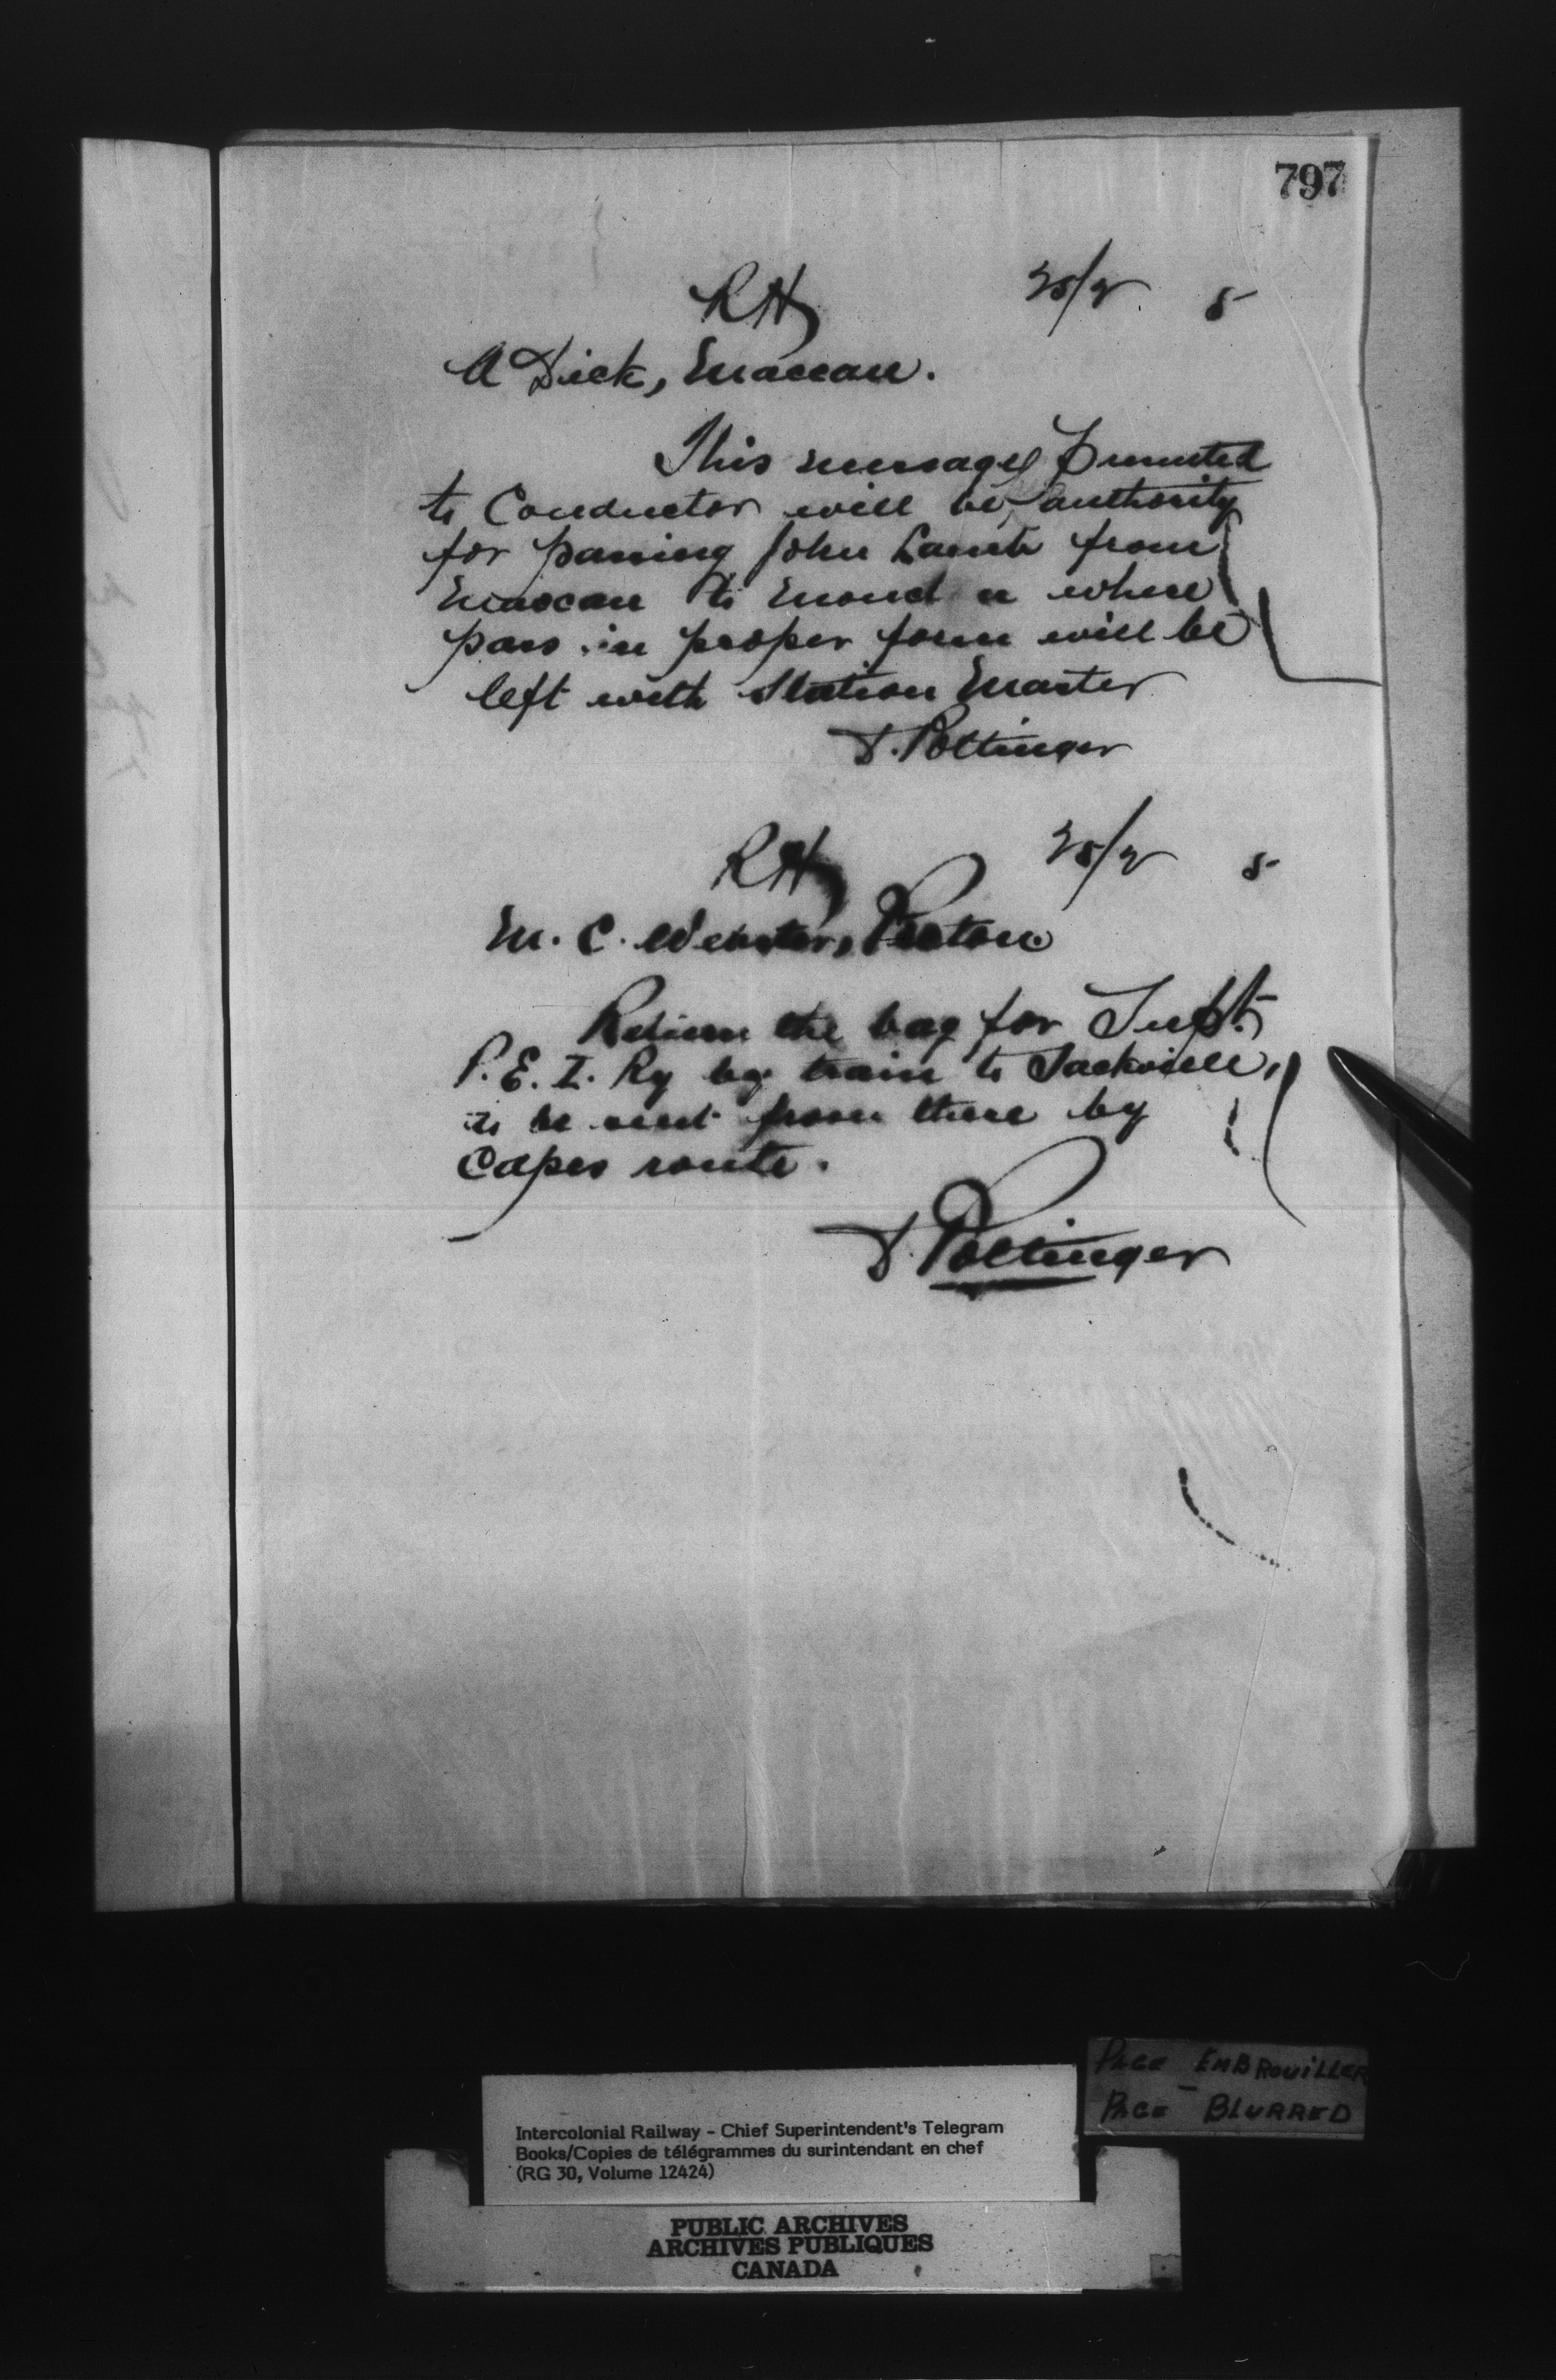 797
RH 25/2 5
A Dick, Maccan.
This message presented
to Conductor will be authority
for passing John Lamb from
Maccan to Moncton where
pass in proper form will be
left with Station Master
D. Pottinger
RH 25/2 5
M. C. Webster, Pictou
Return the bag for Supt.
P. E. I. Ry by train to Sackville,
to be sent from there by
Capes route.
D. Pottinger
PAGE EMBROUILLER
PAGE - BLURRED
Intercolonial Railway - Chief Superintendent's Telegram
Books/Copies de télégrammes du surintendant en chef
(RG 30, Volume 12424)
PUBLIC ARCHIVES
ARCHIVES PUBLIQUES
CANADA